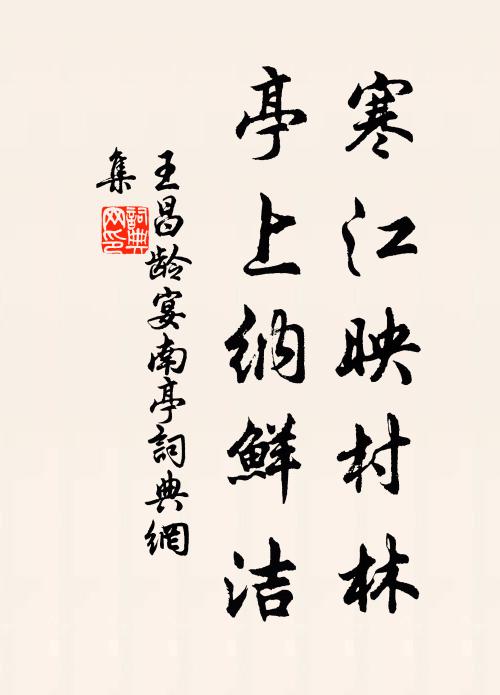 寒江映村林
亭上纳鮮洁
王昌龄宴南亭詞典網
集
詞典
网印